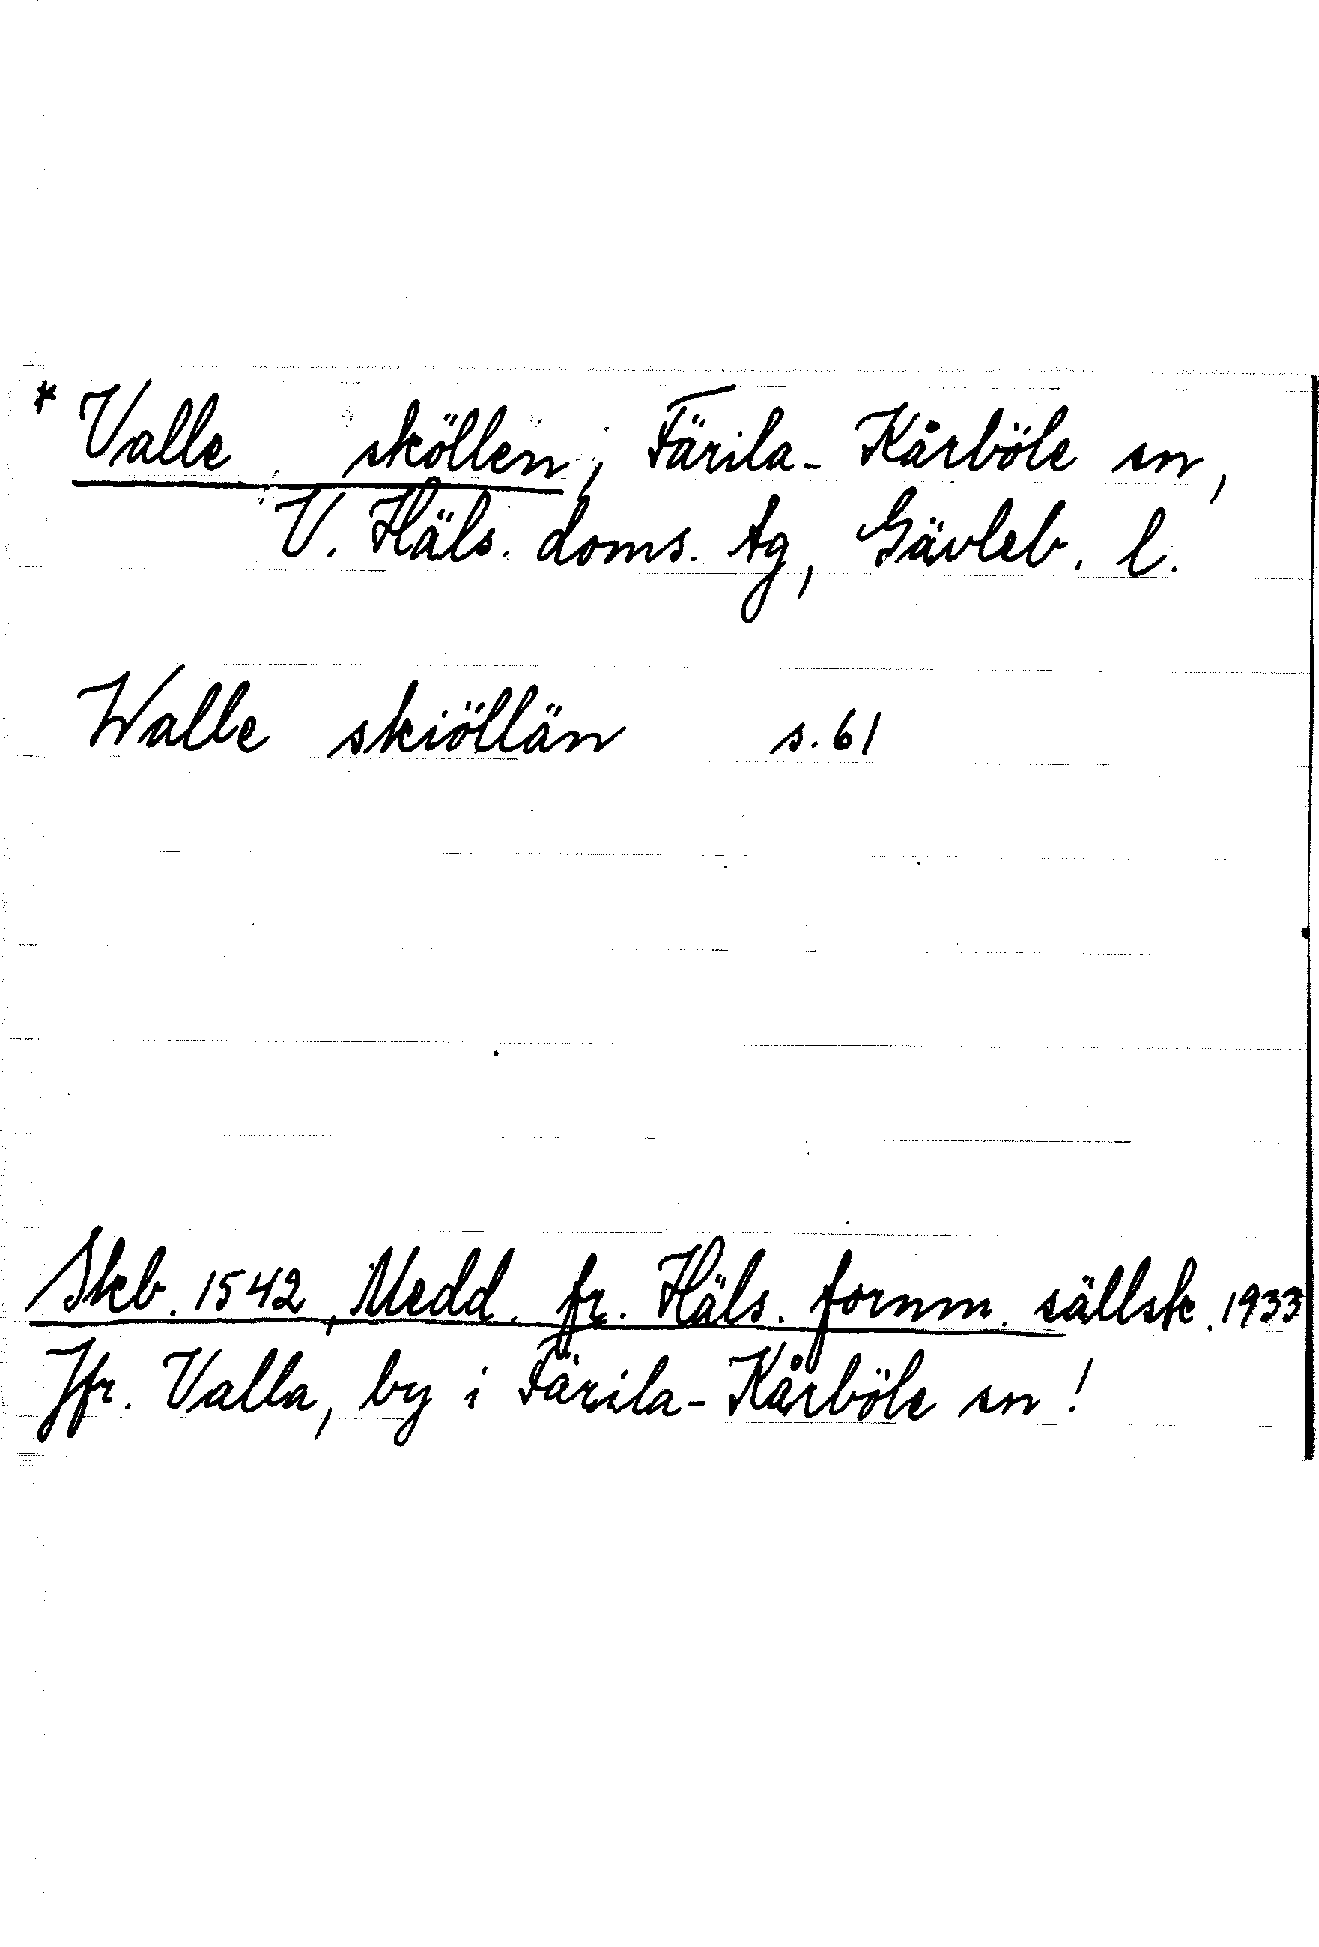 * Valle sköllen, Färila-Kårböle sn,
V. Häls. doms. tg, Gävleb. l.
Walle skiöllän s. 61
Skb. 1542, Medd. fr. Häls. fornm. sällsk. 1933
Jfr. Valla, by i Färila-Kårböle sn!